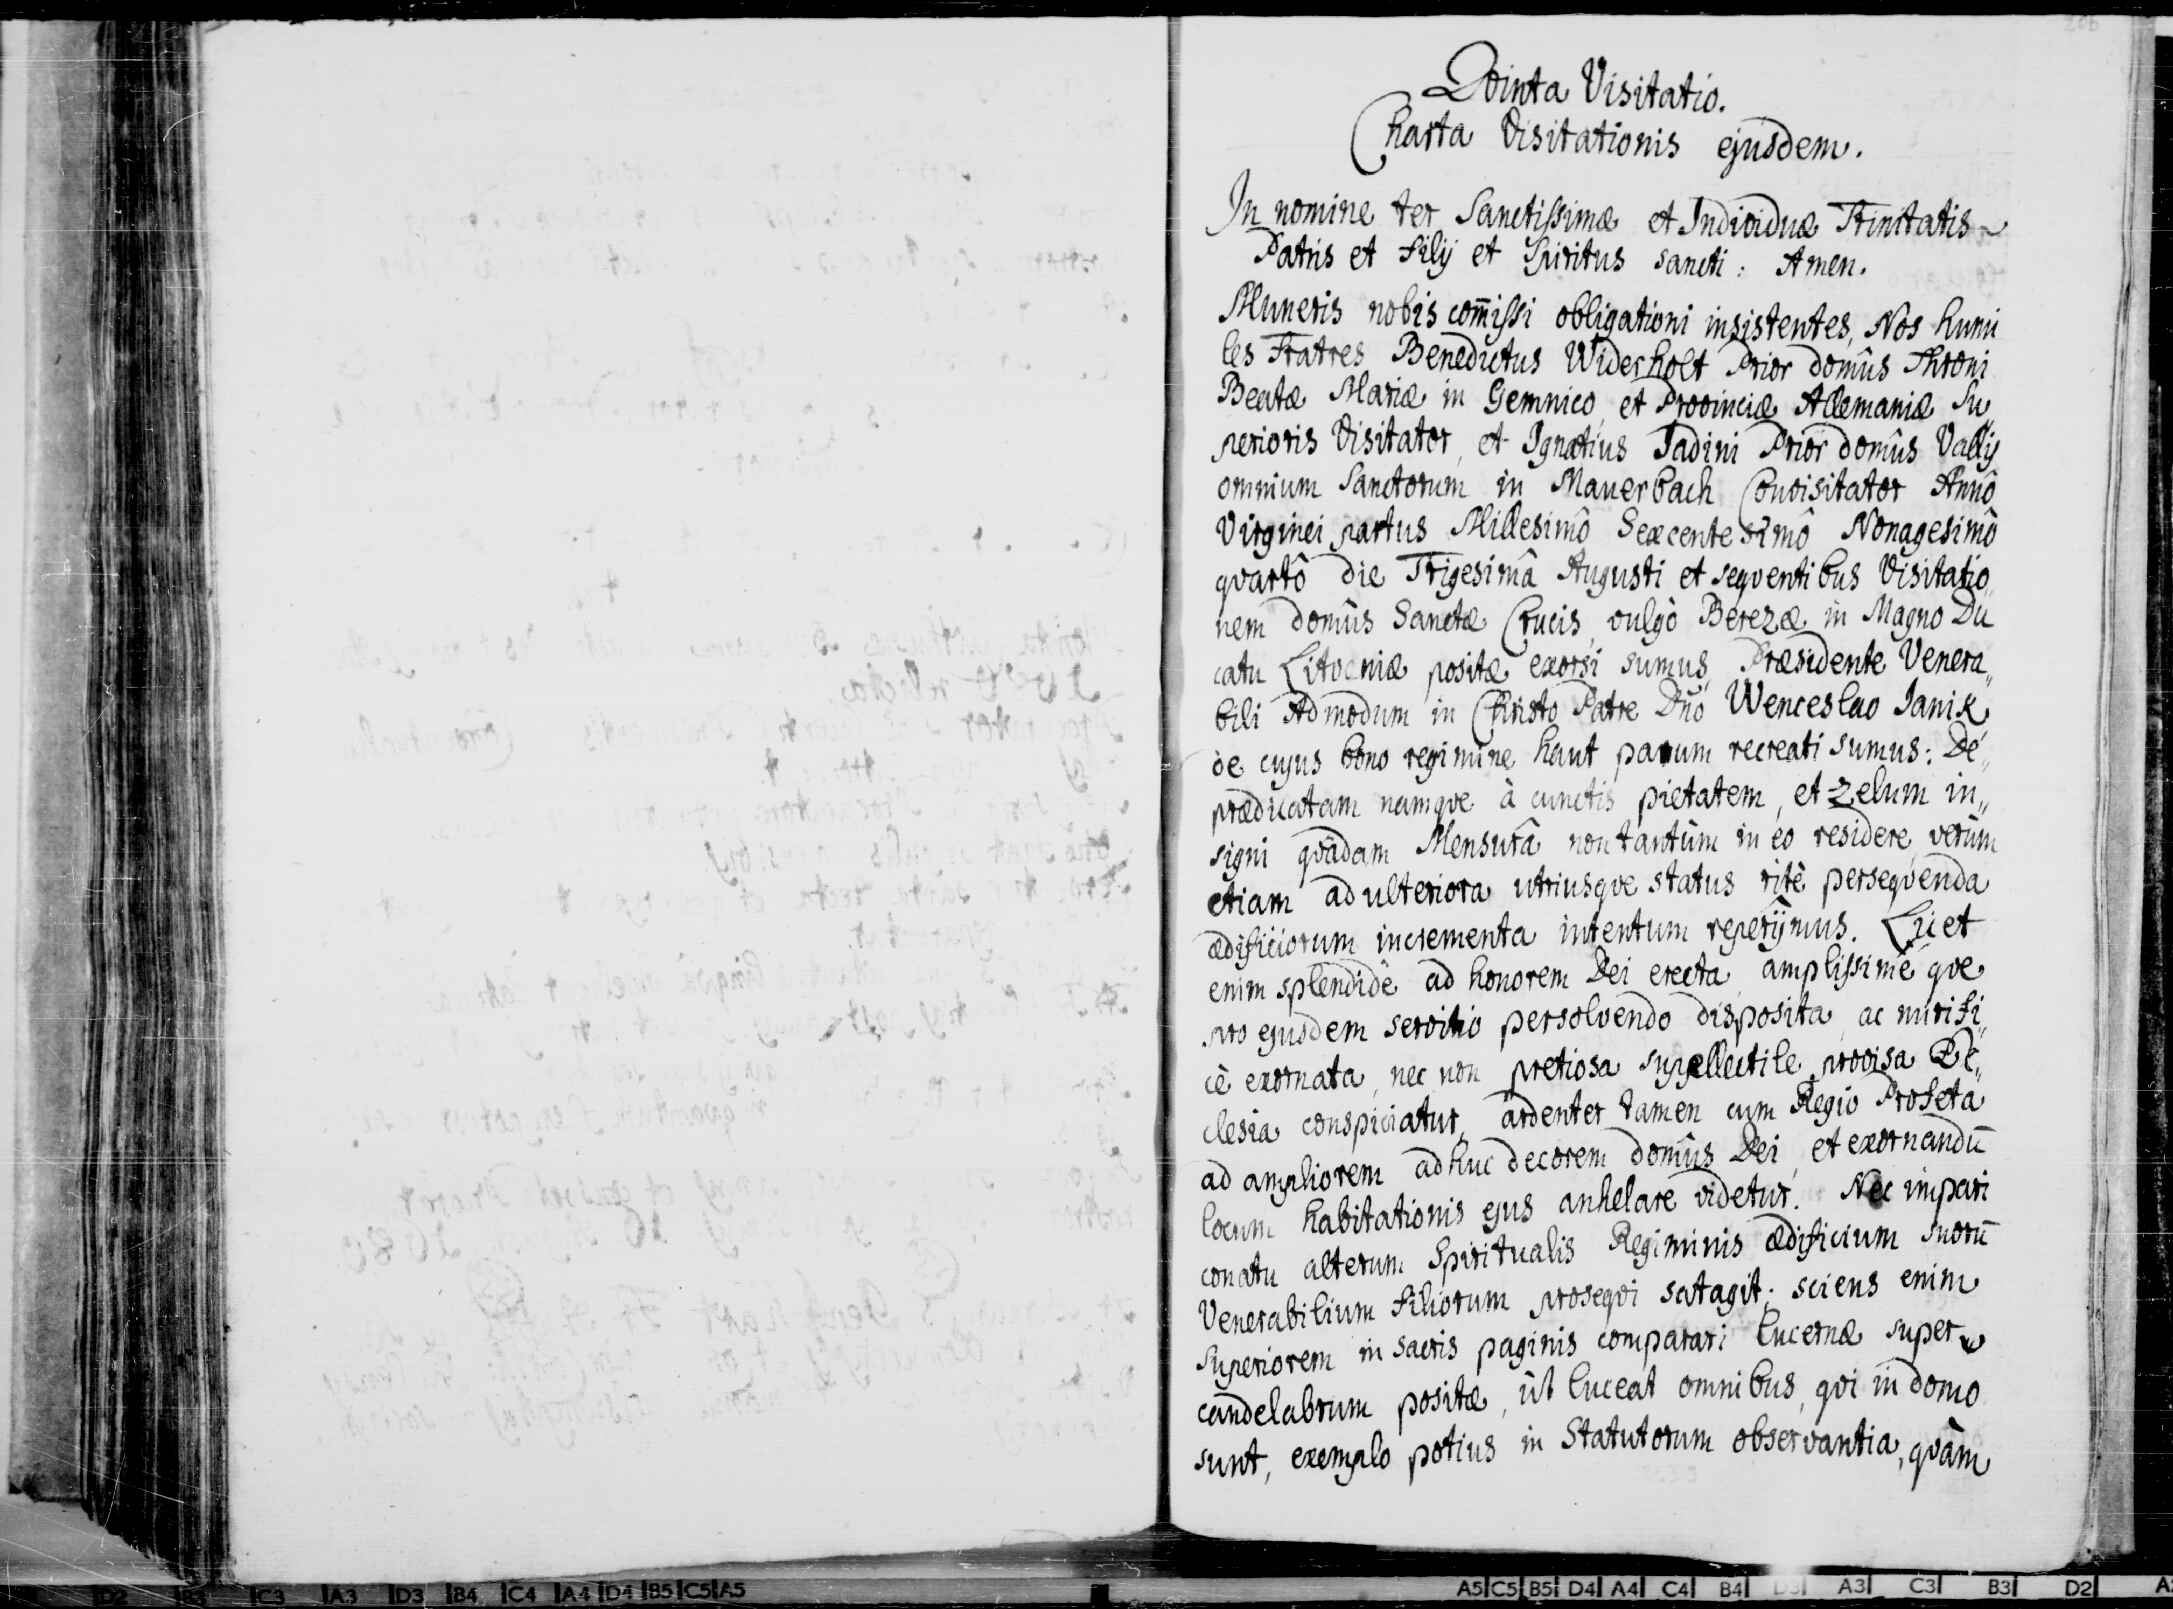 206
Qvinta Visitatio.
Charta Visitationis ejusdem.
In nomine ter Sanctissimæ et Individuæ Trinitatis
Patris et Filij et Spiritus sancti: Amen.
Muneris nobis com̄issi obligationi insistentes, Nos humi
les Fratres Benedictus Widerholt Prior domûs Throni
Beatæ Mariæ in Gemnico, et Provinciæ Allemaniæ Su„
perioris Visitator, et Ignatius Jadini Prior domûs Vallis
omnium Sanctorum in Mauerbach Convisitator Annô
Virginei partus Millesimô Sexcentesimô Nonagesimô
qvartô die Trigesimâ Augusti et seqventibus Visitatio„
nem domûs Sanctæ Crucis, vulgò Berezæ in Magno Du
catu Litvaniæ positæ exorsi sumus, Præsidente Venera„
bili Admodum in Christo Patre Dn̄o Wenceslao Janik
de cujus bono regimine haut parum recreati sumus: De„
prædicatam namqve à cunctis pietatem, et zelum in„
signi qvâdam Mensurâ non tantùm in eo residere, verùm
etiam ad ulteriora utriusqve status ritè perseqvenda
ædificiorum incrementa intentum reperijmus. Licet
enim splendidè ad honorem Dei erecta, amplissimè qve
pro ejusdem servitio persolvendo disposita, ac mirifi„
cè exornata, nec non pretiosa supellectile provisa Ec„
clesia conspiciatur, ardenter tamen cum Regio Profeta
ad ampliorem adhuc decorem domûs Dei, et exornandū
locum habitationis ejus anhelare videtur. Nec impari
conatu alterum Spiritualis Regiminis ædificium suorū
Venerabilium Filiorum proseqvi satagit; sciens enim
Superiorem in sacris paginis comparari lucernæ super
candelabrum positæ, ùt luceat omnibus, qvi in domo
sunt, exemplo potius in Statutorum observantia, qvàm